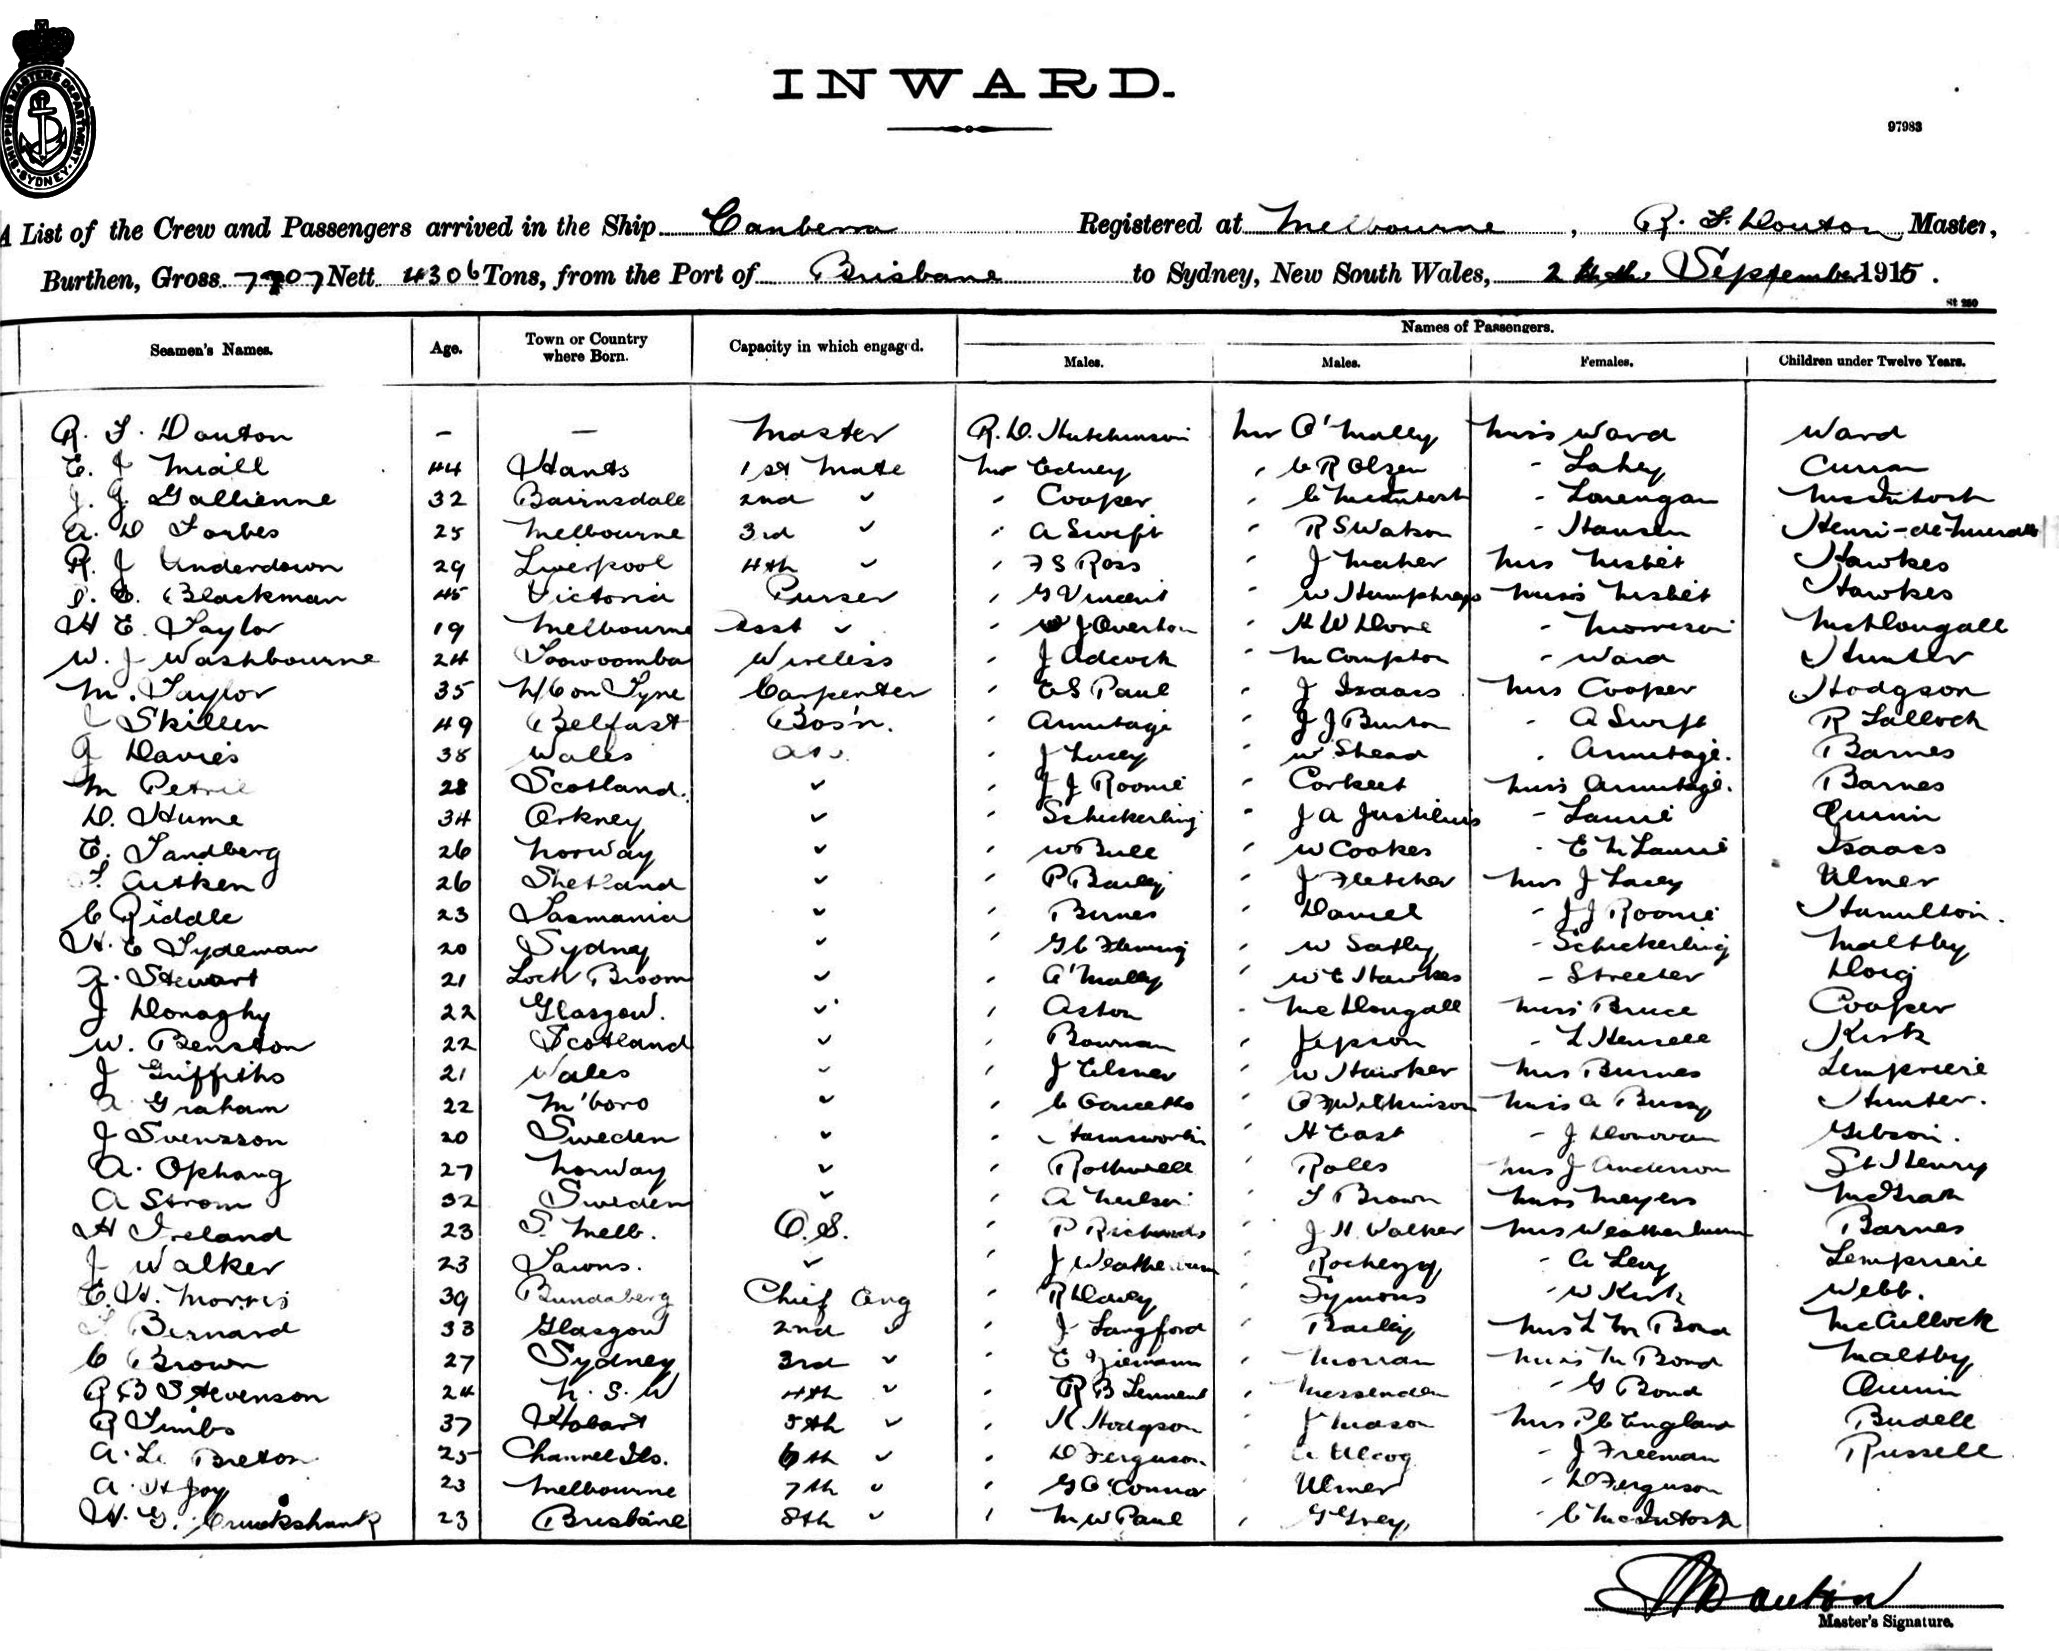 SHIPPING MASTERS DEPARTMENT. SYDNEY.
INWARD.
97983
A List of the Crew and Passengers arrived in the Ship Canberra Registered at Melbourne, R. F. Douton Master,
Burthen, Gross 7707 Nett 4306 Tons, from the Port of Brisbane to Sydney, New South Wales, September 1915.
St 280
Names of Passengers.
Seamen's Names. Age. Town or Country where Born. Capacity in which engaged. Males. Males. Females. Children under Twelve Years.
R. F. Douton - - Master R. D. Hutchinson Mr O'Mally Miss Ward Ward
E. J Miall 44 Hants 1st Mate Mr Edney " C R Olsen " Lahey Curran
J. G. Gallienne 32 Bairnsdale 2nd " " Cooper " C McIntosh " Lonergan McIntosh
A. D Forbes 25 Melbourne 3rd " " A Swift " R S Watson " Hansen Henri-de-
R. J Underdown 29 Liverpool 4th " " F S Ross " J Maher Mrs Nisbet Hawkes
Blackman 45 Victoria Purser " G Vincent " W Humphreys Miss Nisbet Hawkes
H E. Taylor 19 Melbourne Asst " " W J Overton " H W Dove " Morrison McDougall
W. J Washbourne 24 Toowoomba Wireless " J Adcock " M Compton " Ward Hunter
M. Taylor 35 N/C on Tyne Carpenter " E S Paul " J Isaacs Mrs Cooper Hodgson
J Skillen 49 Belfast Bos'n. " Armitage " J J Burton " A Swift R Talloch
G Davies 38 Wales A.B. " J Lacey " W Shead " Armitage. Barnes
M Petrie 28 Scotland. " " J J Roome " Corkeet Miss Armitage. Barnes
D. Hume 34 Orkney " " Schickerling " J A " Laurie Quinn
E. Sandberg 26 Norway " " W Bull " W Cookes " E M Laurie Isaacs
Aitken 26 Shetland " " P Bailey " J Fletcher Mrs J Lacey Ulmer
C Riddle 23 Tasmania " " Burnes " Daniel " J J Roome Hamilton.
H. E Tydeman 20 Sydney " " G C Fleming " W Satly " Schickerling Maltby
J. Stewart 21 Loch Broom " " O'Mally " W E Hawkes " Streeter Doig
J Donaghy 22 Glasgow. " " Aston " McDougall Miss Bruce Cooper
W. Benston 22 Scotland " " Bowman " Jepson " L Hensell Kirk
J Griffiths 21 Wales " " J Elsner " W Hawker Mrs Burnes Lempriere
A Graham 22 M'boro " " C " O F Wilkinson Miss A Bussy Hunter.
J Svensson 20 Sweden " " Harnsworth " H East " J Donovan Gibson.
A. Ophang 27 Norway " " Rothwell " Roles Mrs J Anderson St Henry
A Strom 32 Sweden " " A Neilson " F Brown Miss Meyers McGrath
H Ireland 23 S. Melb. O.S. " P Richards " J H Walker Mrs Weatherburn Barnes
J Walker 23 " " J Weatherburn " " A Levy Lempriere
E. H. Morris 39 Bundaberg Chief Eng " R Davey " Symons " W Kirk Webb.
Bernard 33 Glasgow 2nd " " J Langford " Bailey Mrs L M Bond McCullock
C Brown 27 Sydney 3rd " " E Ziemann " Morran Miss M Bond Maltby
R B Stevenson 24 N. S. W 4th " " R B Lennent " Messenden " G Bond Quinn
R Timbs 37 Hobart 5th " " K Hodgson " J Mason Mrs P C England Budell
A. Le Breton 25 Channel Ils. 6th " " D Ferguson " " J Freeman Russell
A. H Joy 23 Melbourne 7th " " G O'Connor " Ulmer " D Ferguson
H. G. Cruickshank 23 Brisbane 8th " " M W Paul " G Grey " C McIntosh
R F Douton
Master's Signature.